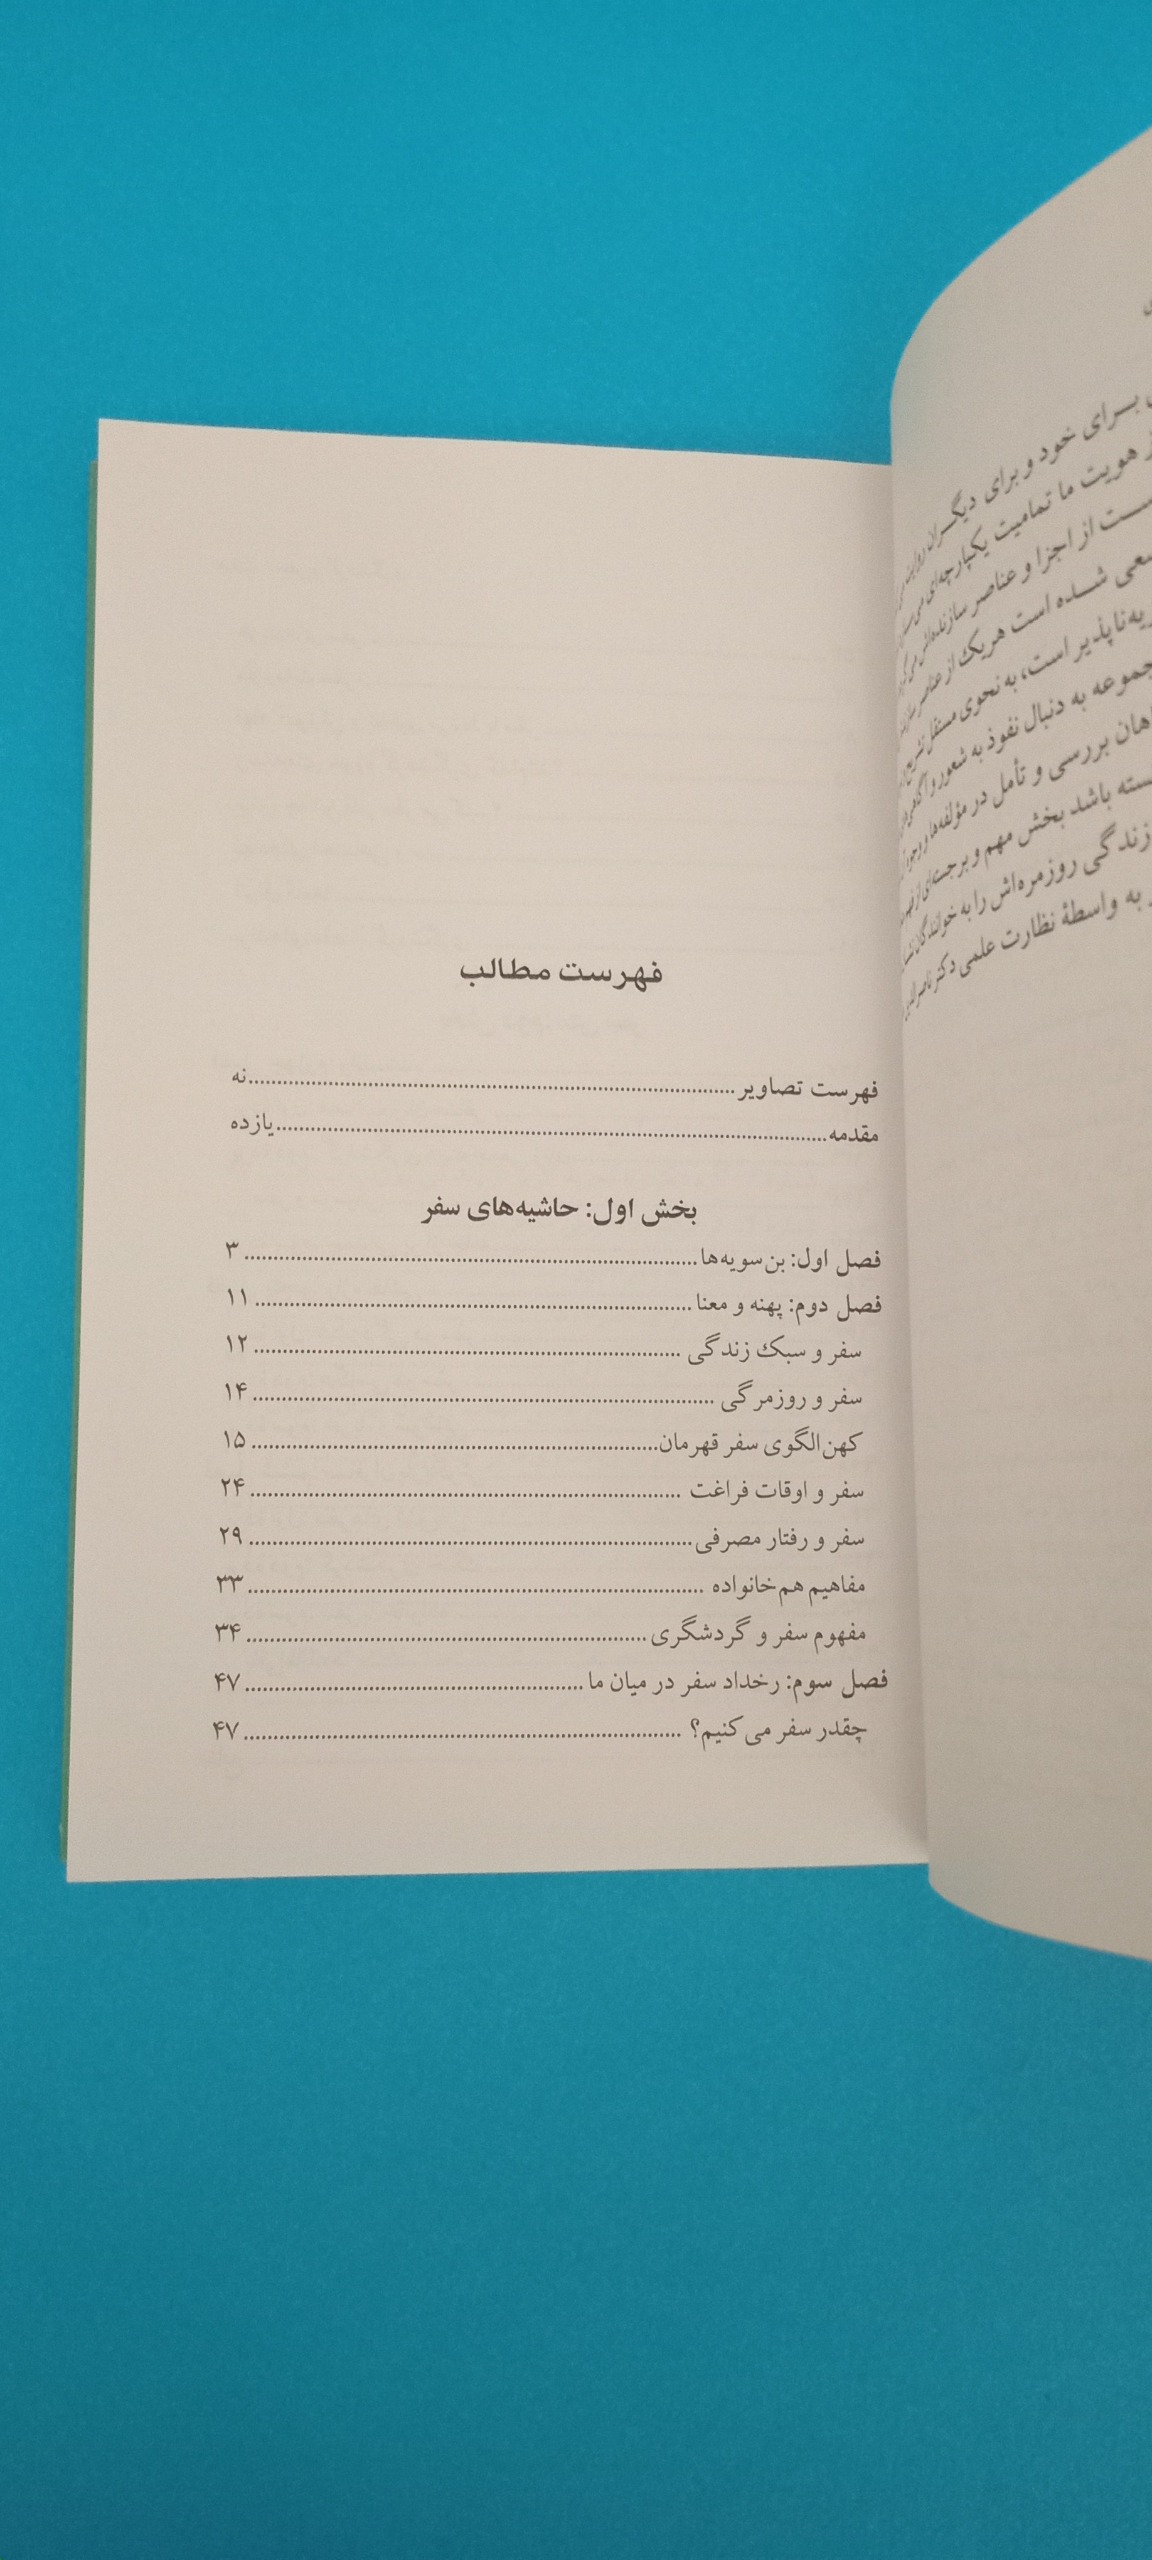 بسرای خود و برای دیگران روایت
هویت ما تمامیت یکپارچه‌ای
از اجزا و عناصر سازنده‌اش
شده است هریک از عناصر
است، به نحوی مستقل تشریح
به دنبال نفوذ به شعور و آگاهی
بررسی و تأمل در مؤلفه‌ها
باشد بخش مهم و برجسته‌ای از
زندگی روزمره‌اش را به خوانندگان
به واسطهٔ نظارت علمی دکتر
فهرست مطالب
فهرست تصاویر ........ نه
مقدمه ........ یازده
بخش اول: حاشیه‌های سفر
فصل اول: بن‌سویه‌ها ........ ۳
فصل دوم: پهنه و معنا ........ ۱۱
سفر و سبک زندگی ........ ۱۲
سفر و روزمرگی ........ ۱۴
کهن‌الگوی سفر قهرمان ........ ۱۵
سفر و اوقات فراغت ........ ۲۴
سفر و رفتار مصرفی ........ ۲۹
مفاهیم هم‌خانواده ........ ۳۳
مفهوم سفر و گردشگری ........ ۳۴
فصل سوم: رخداد سفر در میان ما ........ ۴۷
چقدر سفر می‌کنیم؟ ........ ۴۷